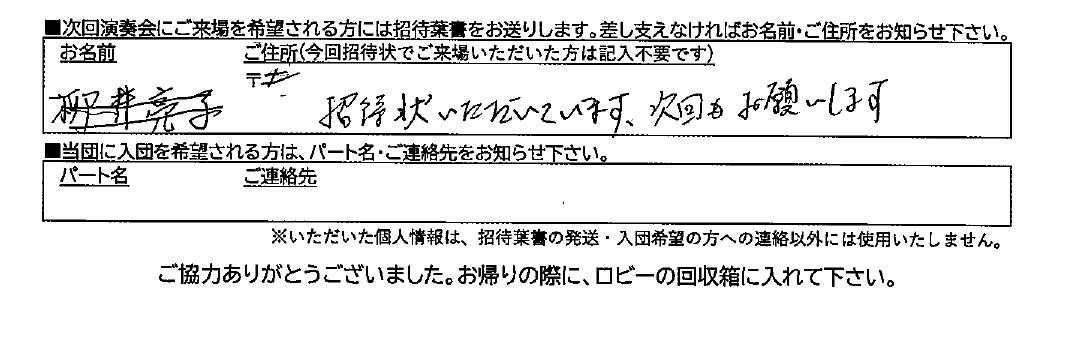 ■次回演奏会にご来場を希望される方には招待葉書をお送りします。差し支えなければお名前・ご住所をお知らせ下さい。
お名前 ご住所(今回招待状でご来場いただいた方は記入不要です)
〒
招待状いただいています、次回もお願いします
■当団に入団を希望される方は、パート名・ご連絡先をお知らせ下さい。
パート名 ご連絡先
※いただいた個人情報は、招待葉書の発送・入団希望の方への連絡以外には使用いたしません。
ご協力ありがとうございました。お帰りの際に、ロビーの回収箱に入れて下さい。